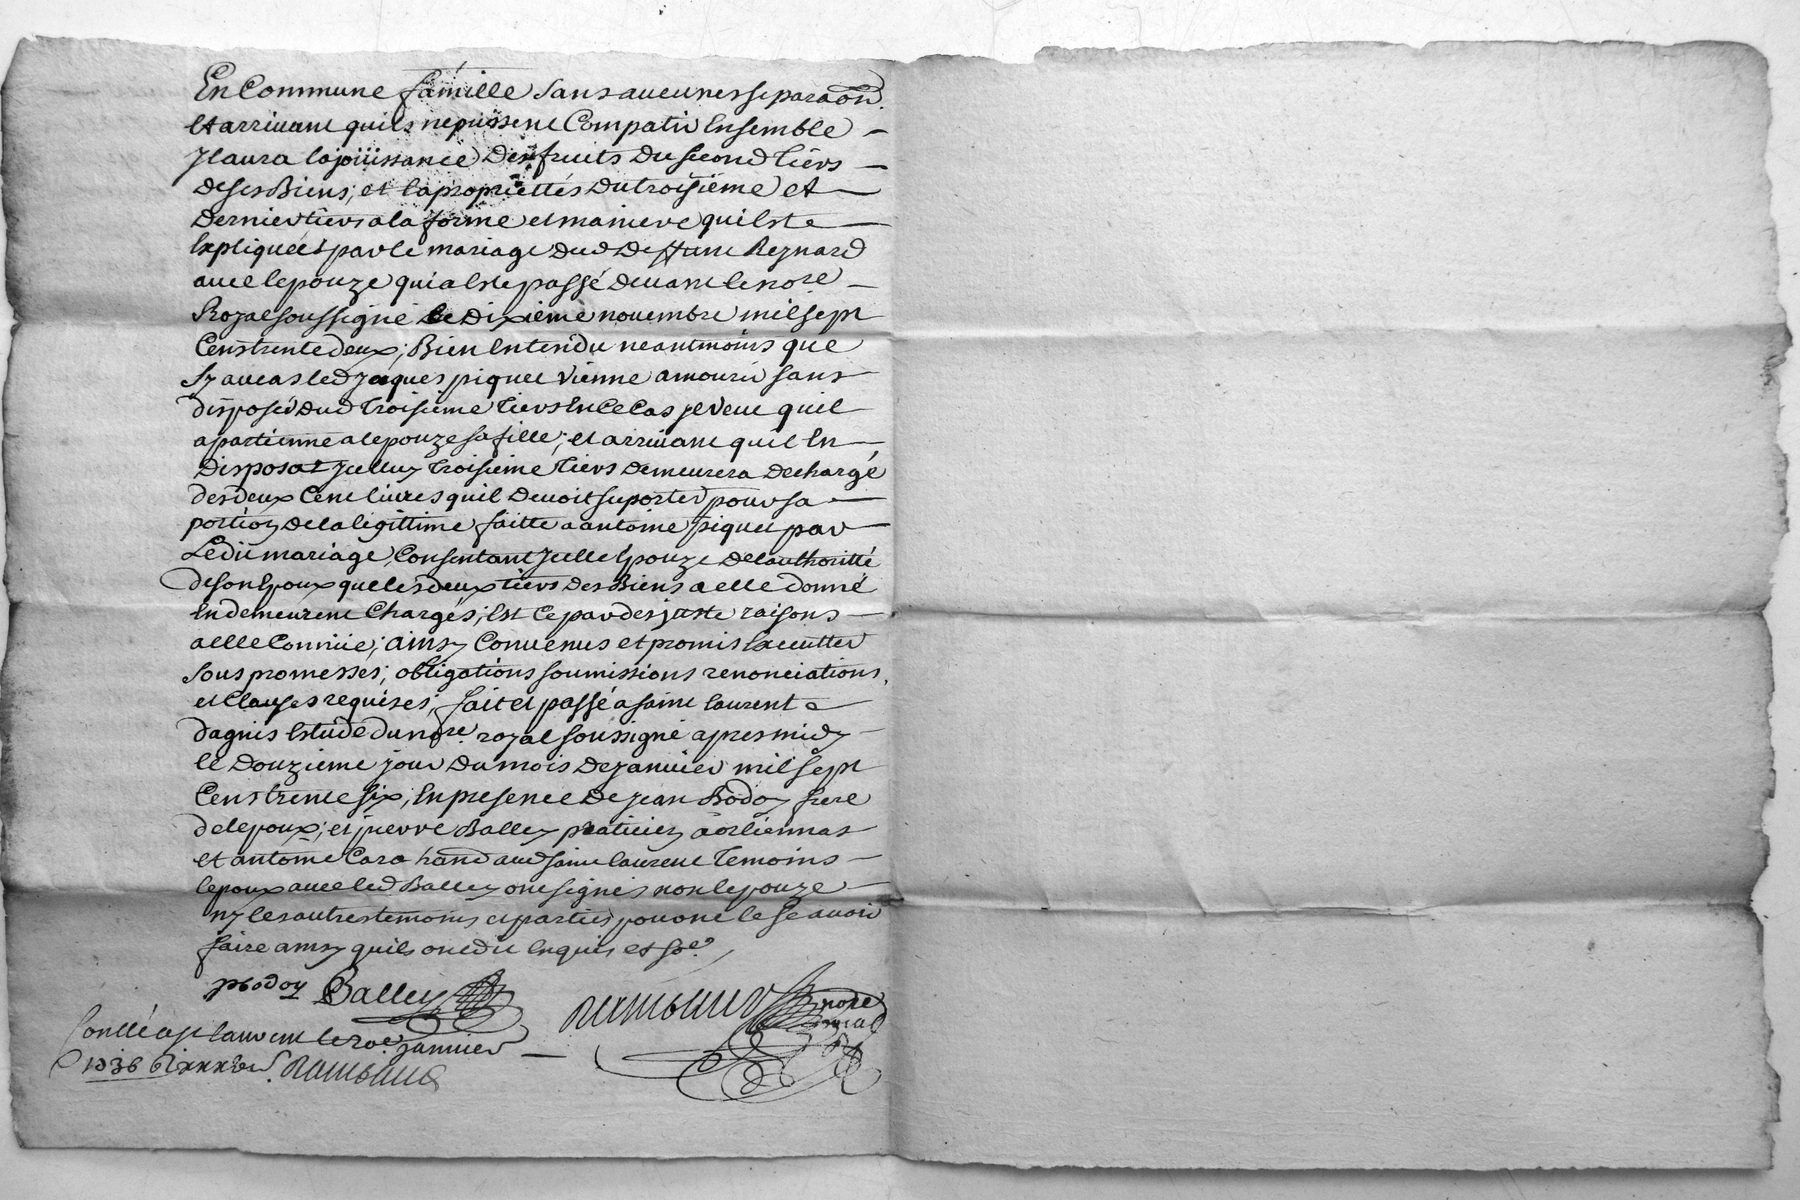 En Commune famille sans aucune separaon.
Et arrivant quils nepuissent Compatir Ensemble
Jl aura la joüissance des fruits du second tiers
de ses Biens; et la propriettés du troisiéme et
dernier tiers a la forme et maniere quil este
Expliquées par le mariage dud deffunt Reynard
avec lepouze qui a este passé devant le nore
Royal soussigné le dixiéme novembre mil sept
Cens trente deux; Bien Entendu neantmoins que
sy au cas led Jaques piquet vienne a mourir sans
disposer dud troisieme tiers En Ce Cas Je veut quil
apartienne a lepouze sa fille; et arrivant quil En
disposat Jcelluy troisieme tiers demeurera dechargé
des deux Cent livres quil devoit suporter pour sa
portion de la legittime faitte a antoine piquet par
Ledit mariage, Consentant Jcelle Epouze de lauthoritté
de son Epoux que les deux tiers des Biens a elle donné
En demeurent Chargés; Est Ce par des juste raisons
a elle Connüe; ainsy Convenus et promis Executter
sous promesses; obligations soumissions renonciations,
et Clauses requises; fait et passé a saint laurent
dagnis Estude du nore. royal soussigné apres midy
le douzieme jour du mois de janvier mil sept
Cens trente six; En presence de jean Bodoy frere
de lepoux; et pierre Balley praticien a orliennas
et antoine Cara dud saint laurent Temoins
lepoux avec led Balley ont signés non lepouze
ny les autres temoins et parties pour ne le scavoir
faire ainsy quils ont dit Enquis et so.
pbodoy Balley
nore
royal
Conllé a st laurent le janvier
1736